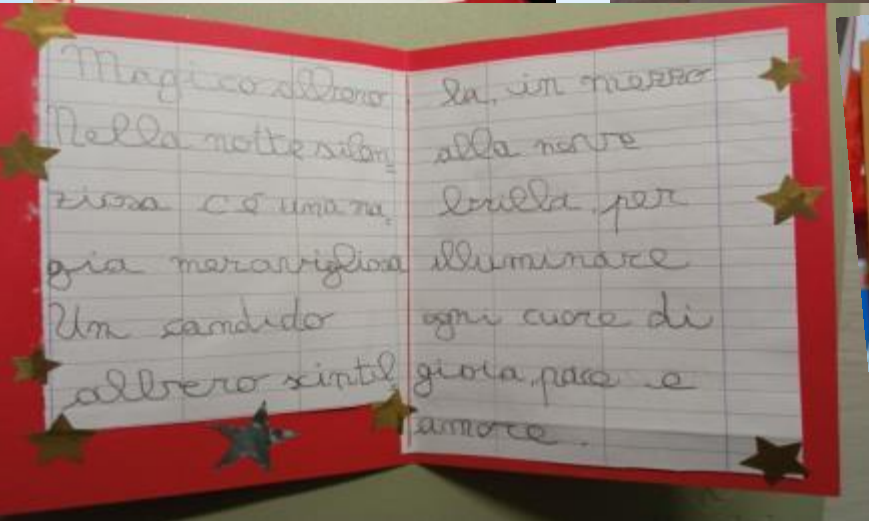 Magico albero
Nella notte silen=
ziosa c'é una ma=
gia meravigliosa
Un candido
albero scintil=
la, in mezzo
alla neve
brilla per
illuminare
ogni cuore di
gioia, pace e
amore.